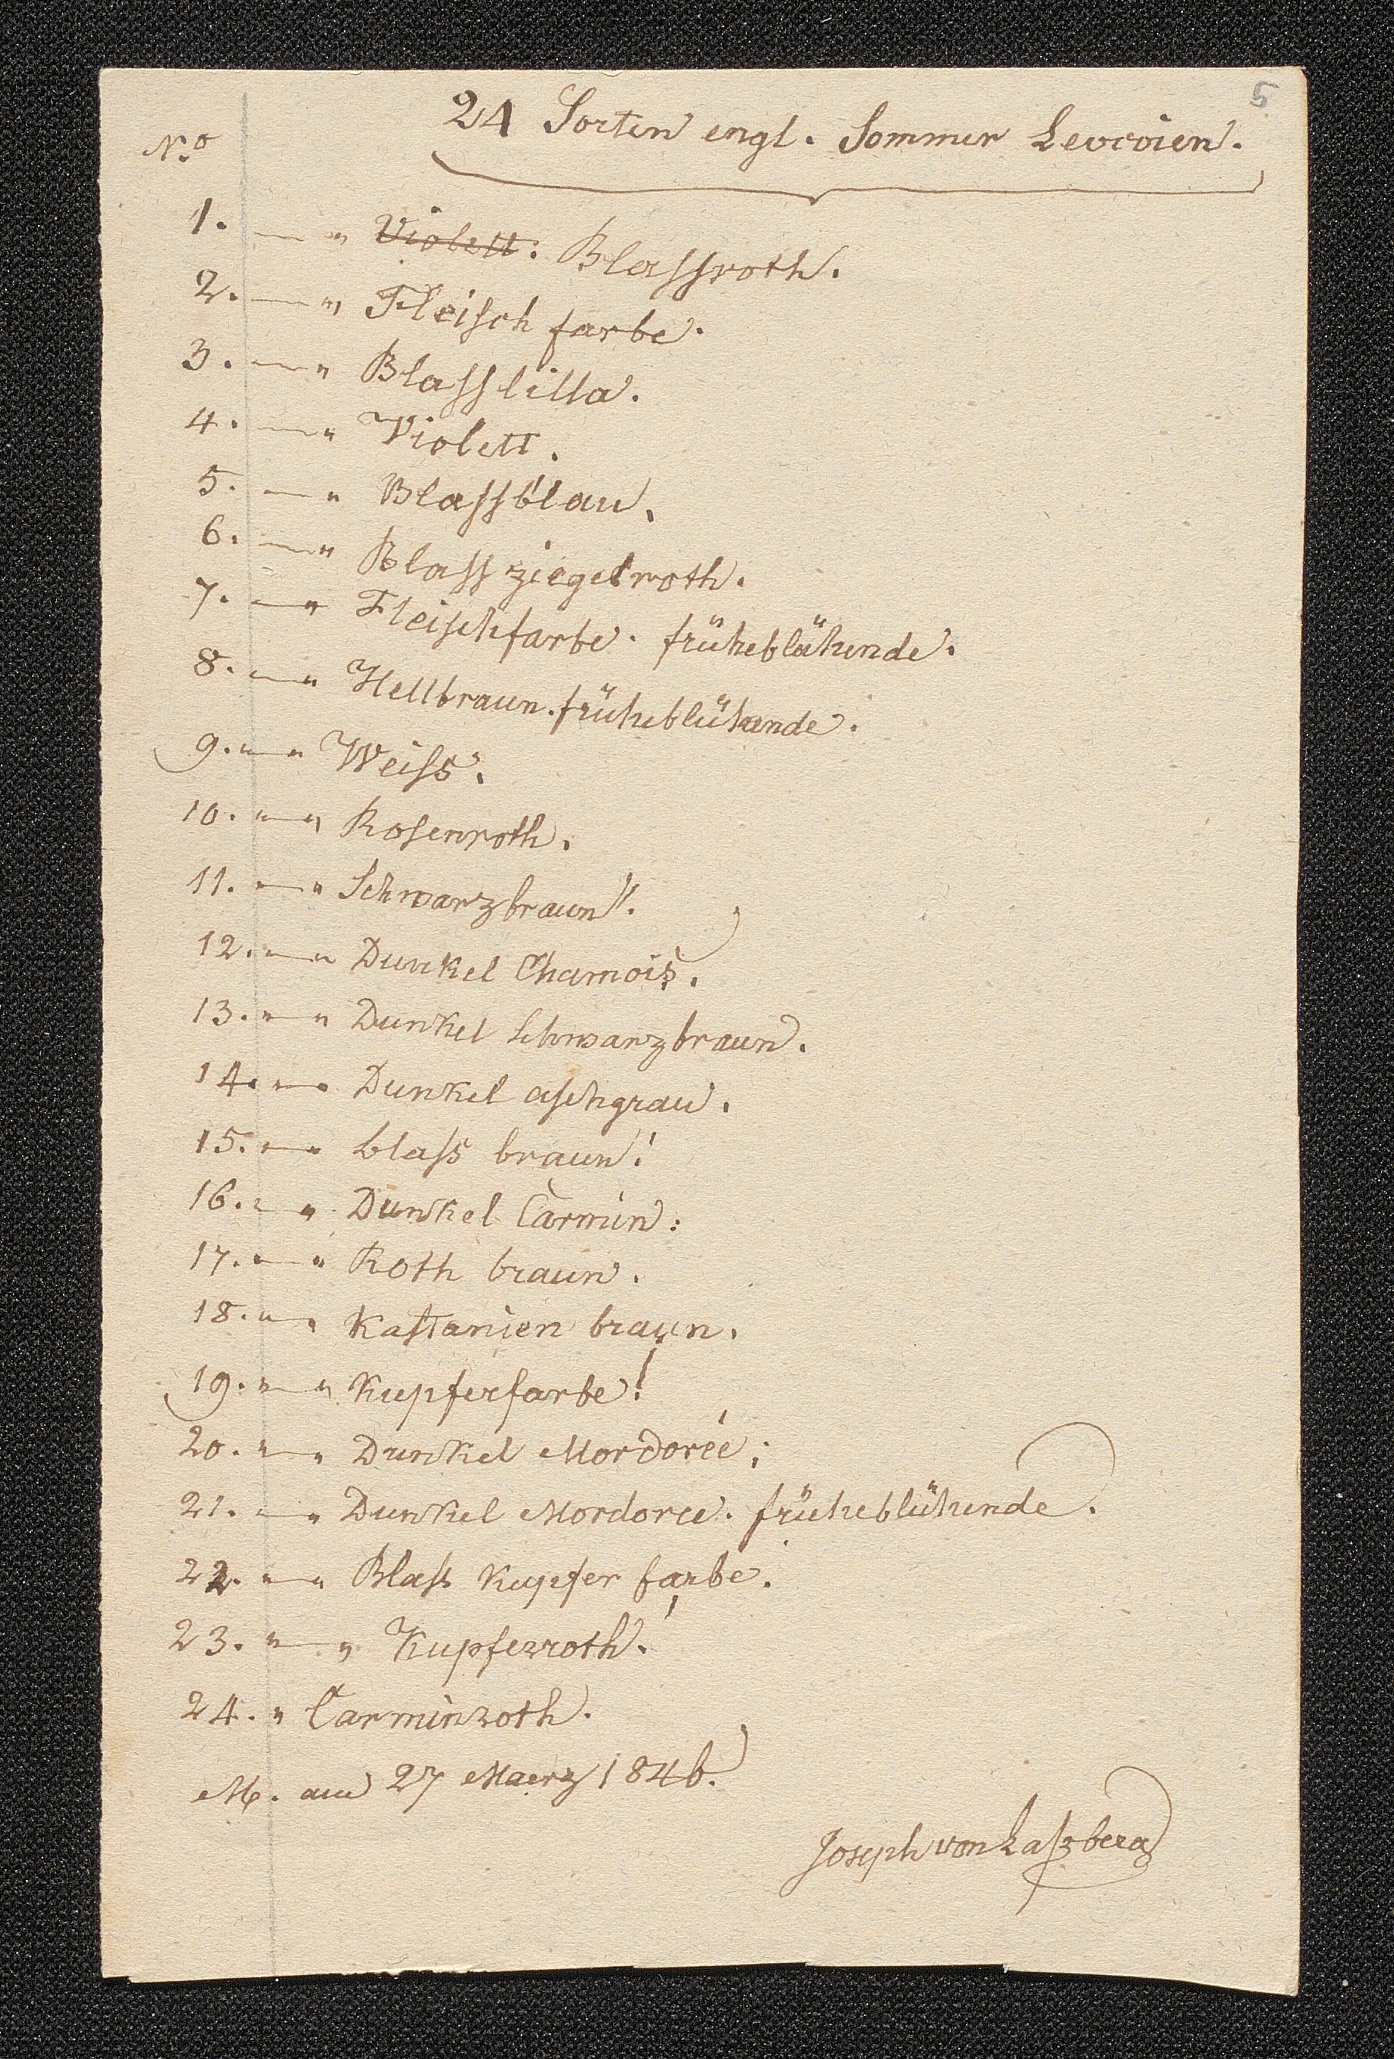 5
24 Sorten engl. Sommer Levcoien.
No
1. — " Violett. Blassroth.
2. — " Fleisch farbe.
3. — " Blasslilla.
4. — " Violett.
5. — " Blassblau.
6. — " Blass ziegelroth.
7. — " Fleischfarbe. früheblühende.
8. — " Hellbraun. früheblühende.
9. " — " Weiss.
10. " — " Rosenroth.
11. " — " Schwarzbraun.
12. " — " Dunkel Chamois.
13. " — " Dunkel schwarzbraun.
14. " — " Dunkel aschgrau.
15. " — " blass braun.
16. " — " Dunkel Carmin.
17. " — " Roth braun.
18. " — " Kastanien braun.
19. " — " Kupferfarbe.
20. " — " Dunkel Mordorée.
21. " — " Dunkel Mordoree. früheblühende.
22. " — " Blass Kupfer farbe.
23. " — " Kupferroth.
24. " Carminroth.
M. am 27 Maerz 1846.
Joseph von Laßberg